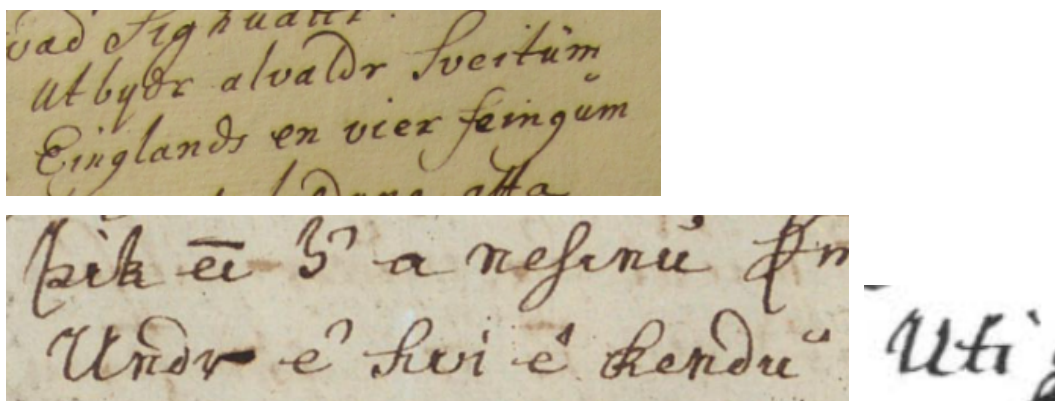 vad Sighuattr.
Utbydr alvaldr sveitüm
Einglands en vier feingüm
atta
þik ei a nesinu
Undr e hvi e kendu
Uti